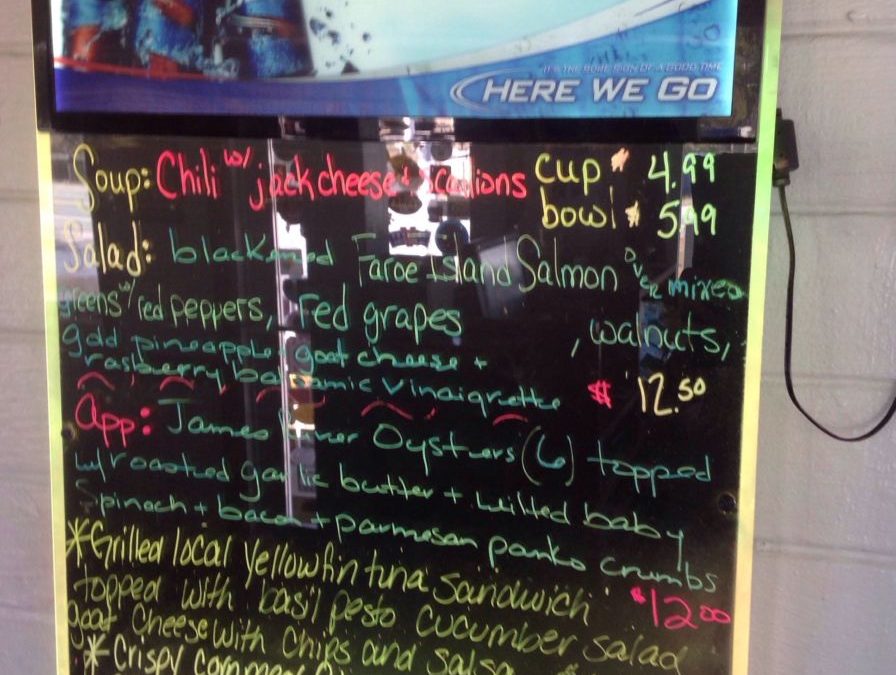 IT'S THE SURE SIGN OF A GOOD TIME
HERE WE GO
Soup: Chili w/ jack cheese + scallions cup $ 4.99
bowl $ 5.99
Salad: blackened Faroe Island Salmon over mixed
greens w/ red peppers, red grapes, walnuts,
gold pineapple, goat cheese +
rasberry balsamic vinaigrette $ 12.50
App: James River Oysters (6) topped
w/ roasted garlic butter + wilted baby
Spinach + bacon + parmesan panko crumbs
$12.00
*Grilled local yellowfin tuna sandwich
topped with basil pesto cucumber salad
goat cheese with chips and salsa
* Crispy